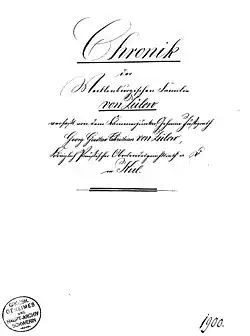 Chronik
der
Mecklenburgischen Familie
von Bülow
verfaßt von dem Kammerjunker, Geheime Justizrath
Georg Gustav Christian von Bülow,
Königlich Preußischer Oberlandesgerichtsrath a D
in Kiel.
GROSSH.
GEHEIMES
UND
HAUPT-ARCHIV
SCHWERIN
1900.